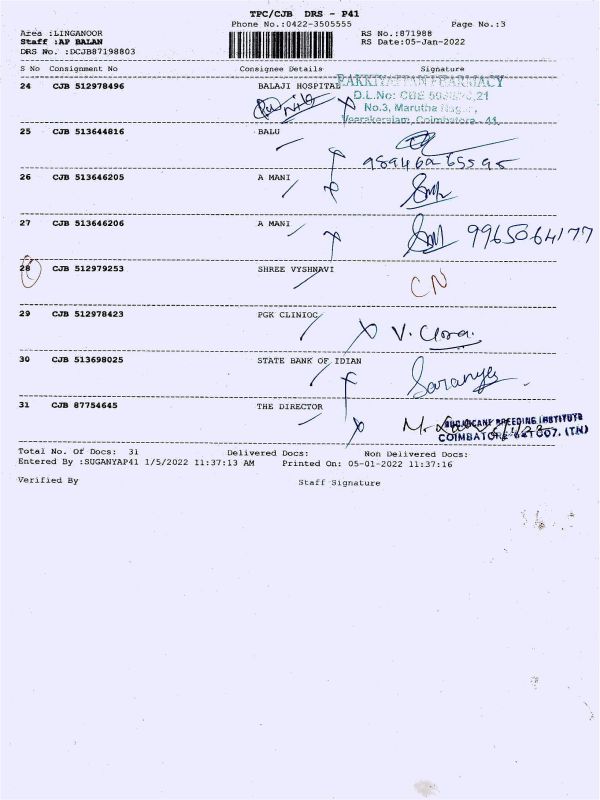 TPC/CJB DRS - P41
Phone No.:0422-3505555 Page No.:3
Area :LINGANOOR RS No.:871988
Staff :AP BALAN RS Date:05-Jan-2022
DRS No. :DCJB87198803
S No Consignment No Consignee Details Signature
24 CJB 512978496 BALAJI HOSPITAL
PHARMACY
D.L.No: CBE
No.3, Marutha
Veerakeralam, Coimbatore - 41.
25 CJB 513644816 BALU
26 CJB 513646205 A MANI
27 CJB 513646206 A MANI 9965064177
28 CJB 512979253 SHREE VYSHNAVI CN
29 CJB 512978423 PGK CLINIOC V.
30 CJB 513698025 STATE BANK OF IDIAN Saranya
31 CJB 87754645 THE DIRECTOR M.
BREEDING INSTITUTE
COIMBATORE 641007. (TN)
Total No. Of Docs: 31 Delivered Docs: Non Delivered Docs:
Entered By :SUGANYAP41 1/5/2022 11:37:13 AM Printed On: 05-01-2022 11:37:16
Verified By Staff Signature